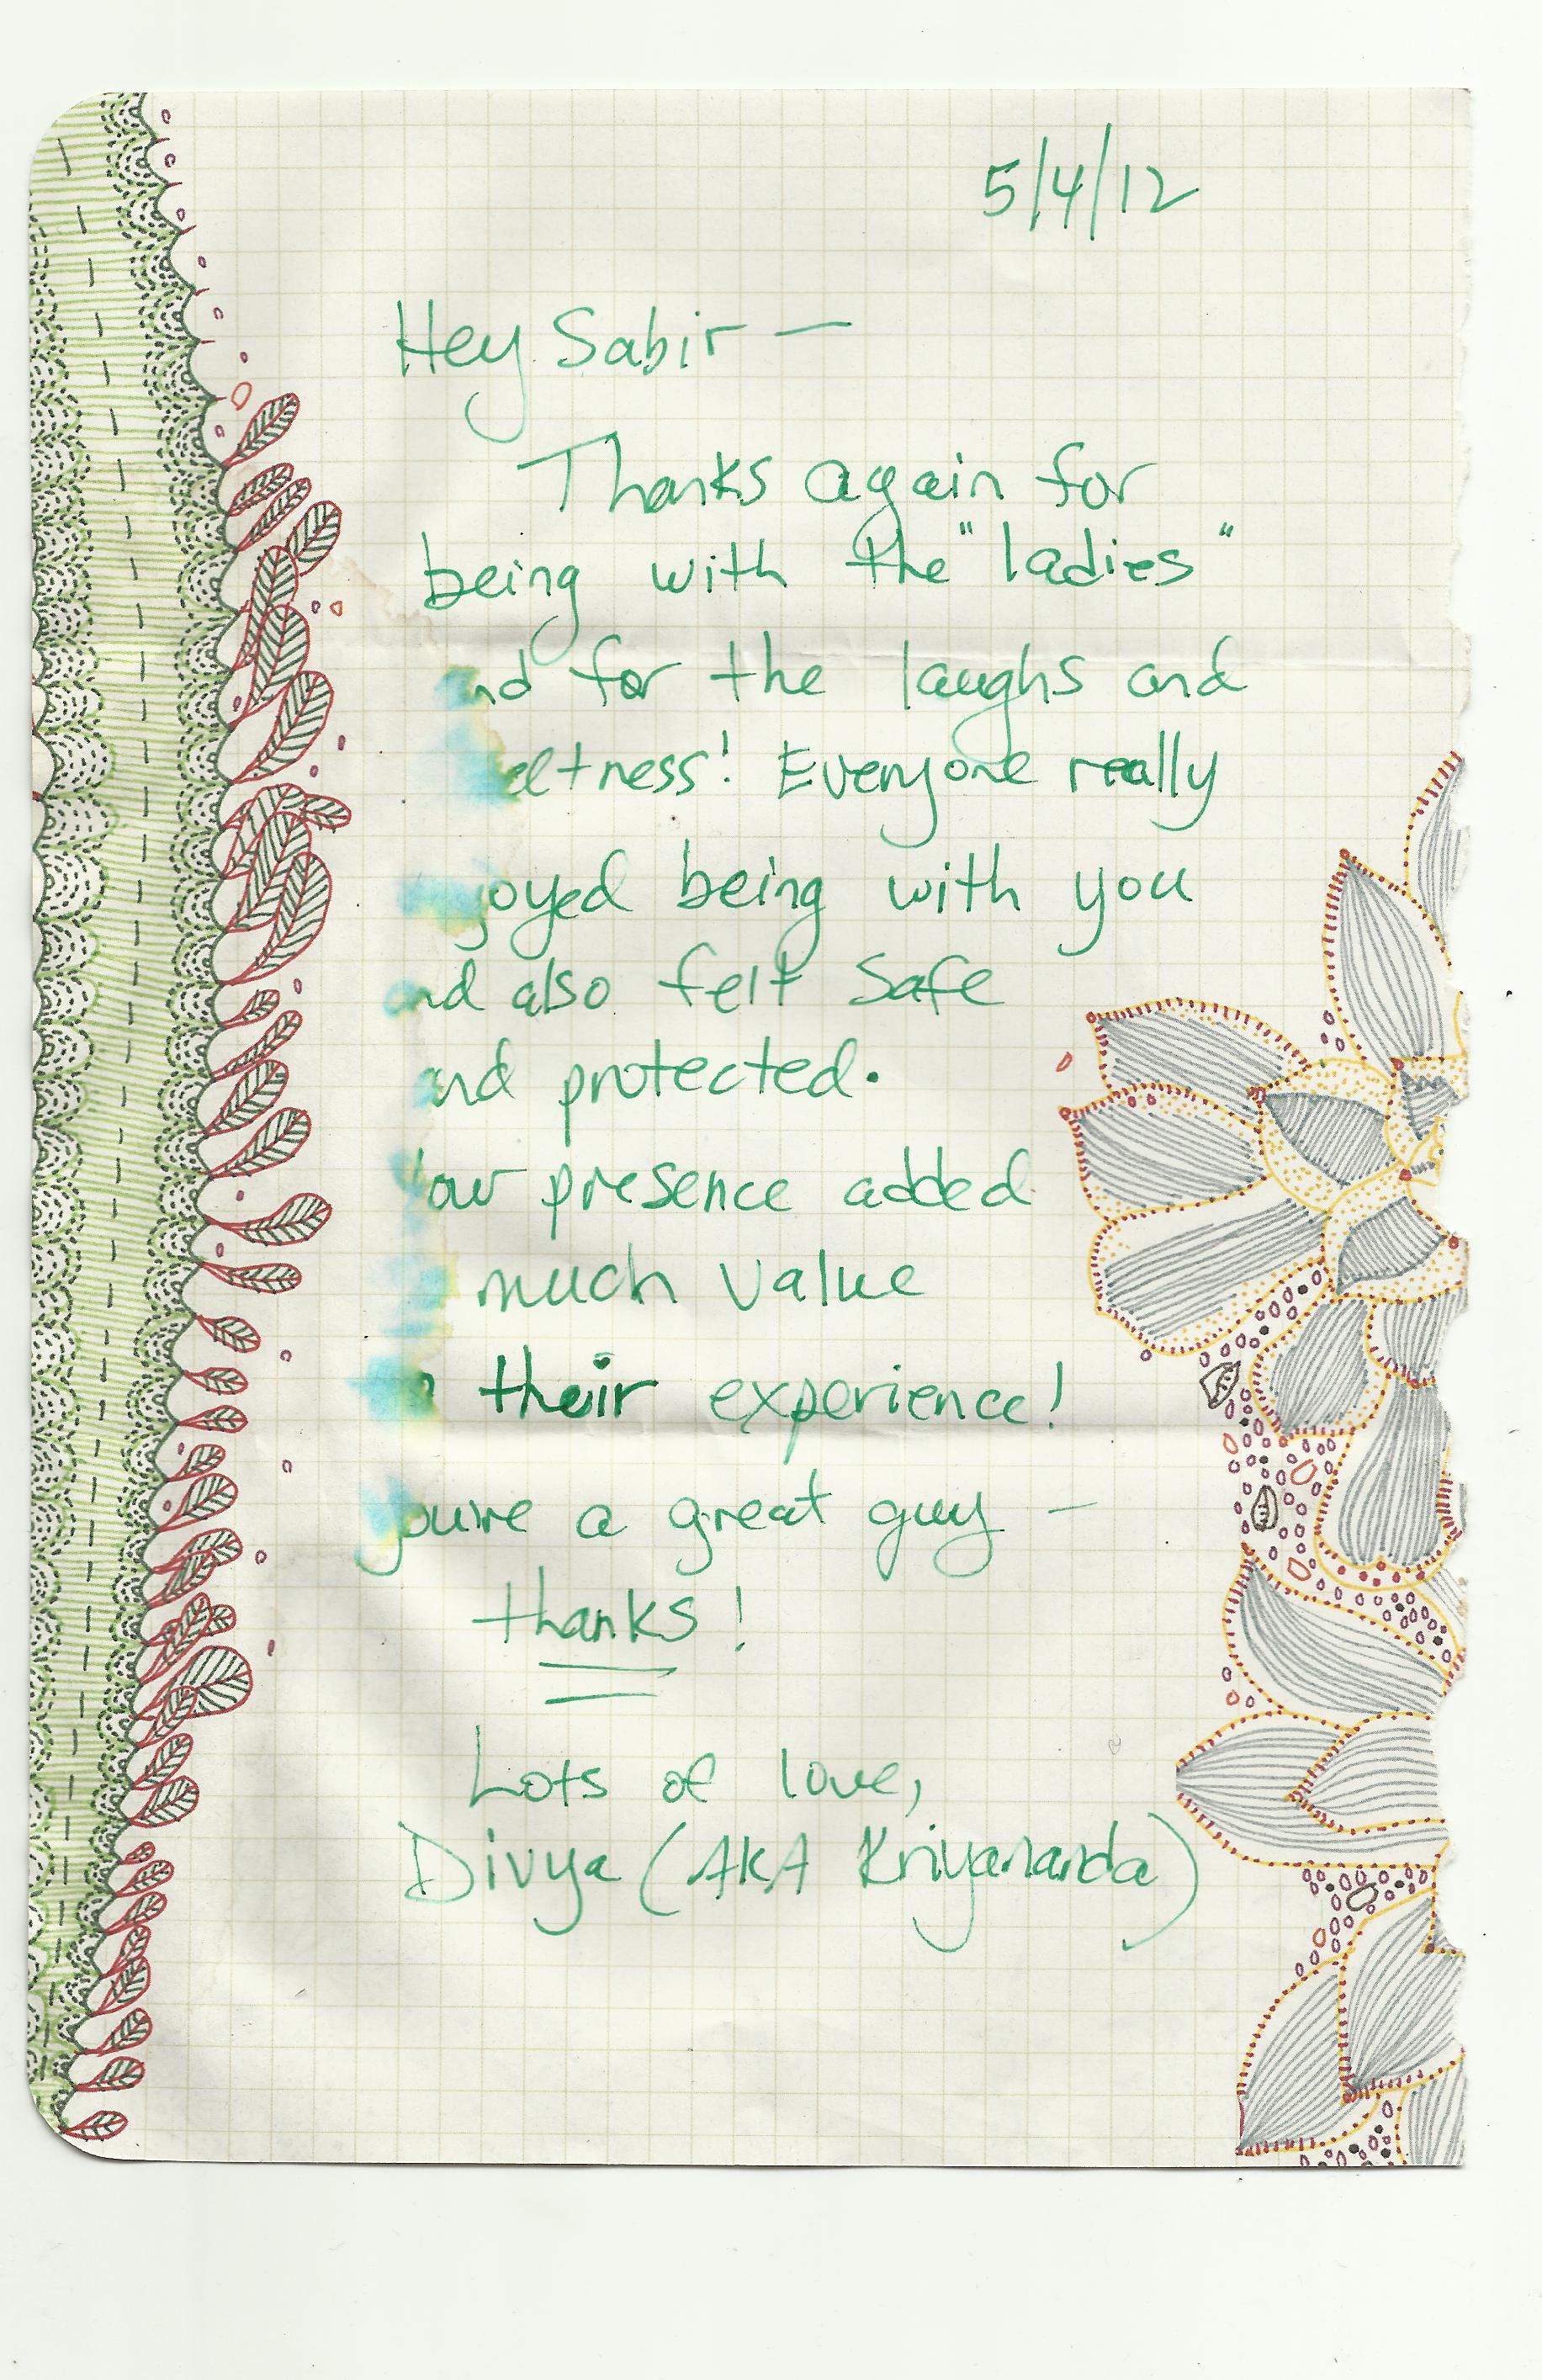 5/4/12
Hey Sabir —
Thanks again for
being with the "ladies"
and for the laughs and
eetness! Everyone really
joyed being with you
and also felt safe
and protected.
Your presence added
much value
their experience!
you're a great guy —
thanks!
Lots of love,
Divya (AKA Kriyananda)